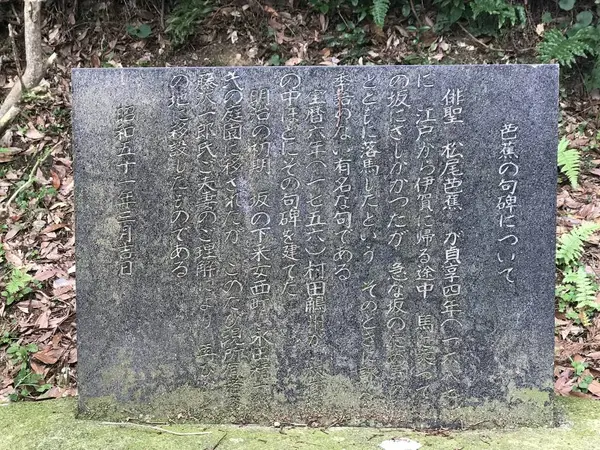 芭蕉の句碑について
俳聖 松尾芭蕉 が貞享四年(一六八七)
に 江戸から伊賀に帰る途中 馬に乗って
の坂にさしかかつたが 急な坂のため
とともに落馬したという そのときに
季語のない有名な句である
宝暦六年(一七五六)村田鵤 が
の中ほどにその句碑を建てた
明治の初期 坂の下釆女西町 永田
氏の庭園に移されたが このたび現所有者
藤 一郎氏ご夫妻のご理解により 再び
の地に移築したものである
昭和五十一年三月吉日